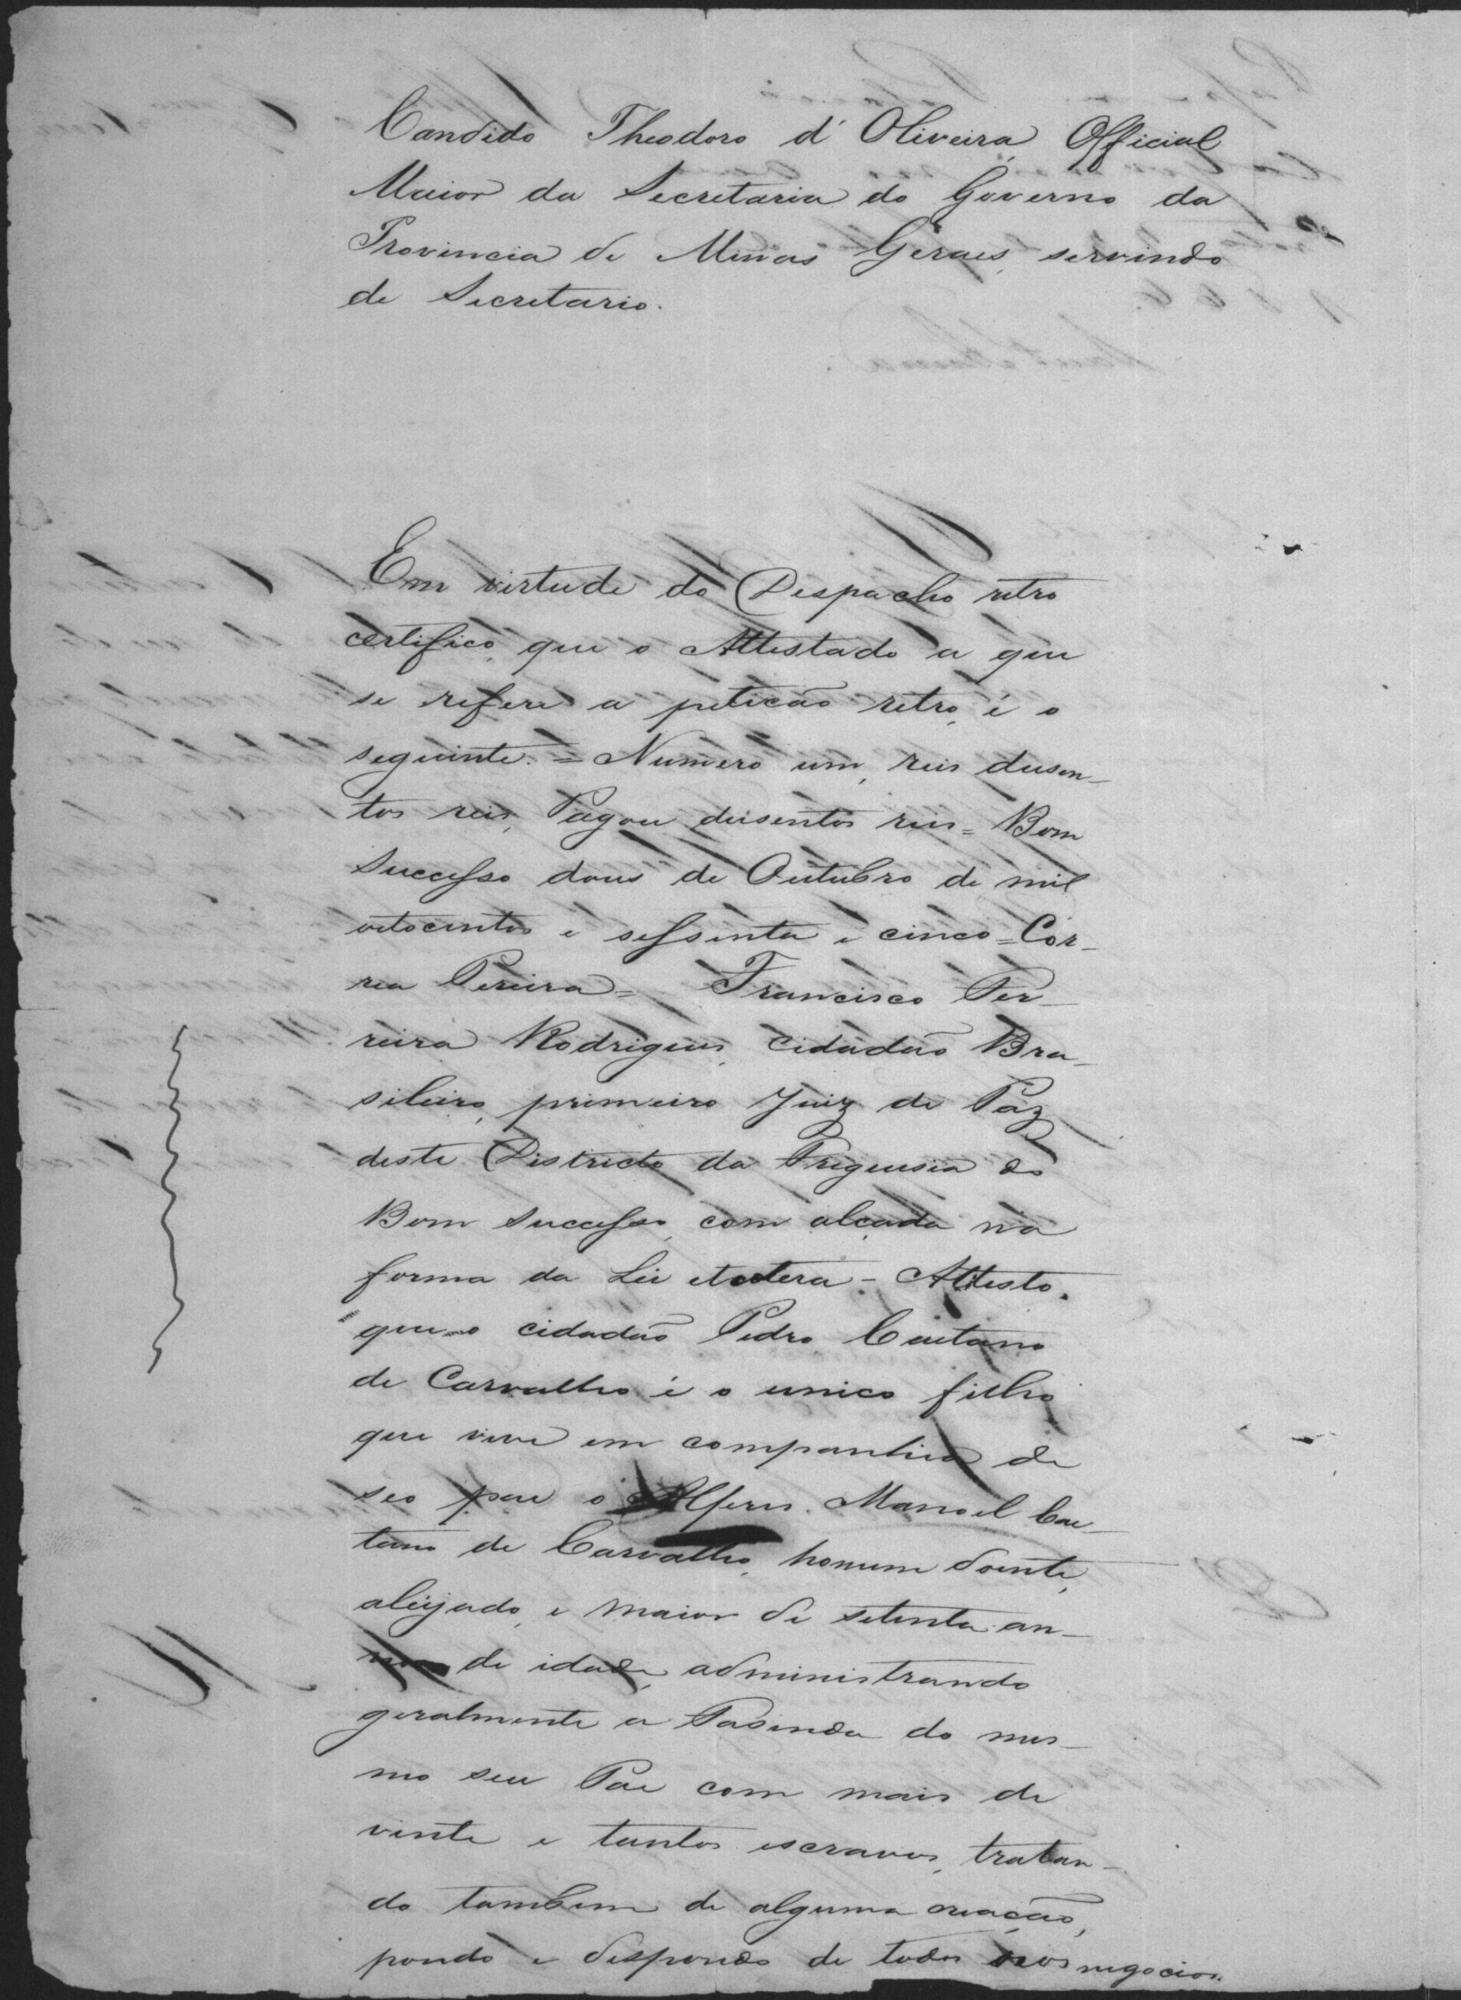 Candido Theodoro d' Oliveira, Official
Maior da Secretaria do Governo da
Provincia de Minas Geraes, servindo
de Secretario.
Em virtude do Despacho retro
certifico, que o Attestado a que
se refere a petição retro, é o
seguinte. = Numero um, reis dusen-
tos reis, Pagou dusentos reis = Bom
Successo dous de Outubro de mil
oitocentos e sessenta e cinco = Cor-
rea Pereira = Francisco Fer-
reira Rodrigues, cidadão Bra-
sileiro, primeiro Juiz de Paz
deste Districto da Freguesia do
Bom Successo, com alçada na
forma da Lei etcetera - Attesto
que o cidadão Pedro Caetano
de Carvalho é o unico filho
que vive em companhia de
seo pae o Alferes Manoel Cae-
tano de Carvalho, homem doente,
aleijado, e maior de setenta an-
nos de idade, administrando
geralmente a Fasenda do mes-
mo seu Pae com mais de
vinte e tantos escravos, tratan-
do tambem de alguma creação,
pondo e dispondo de todos seos negocios.